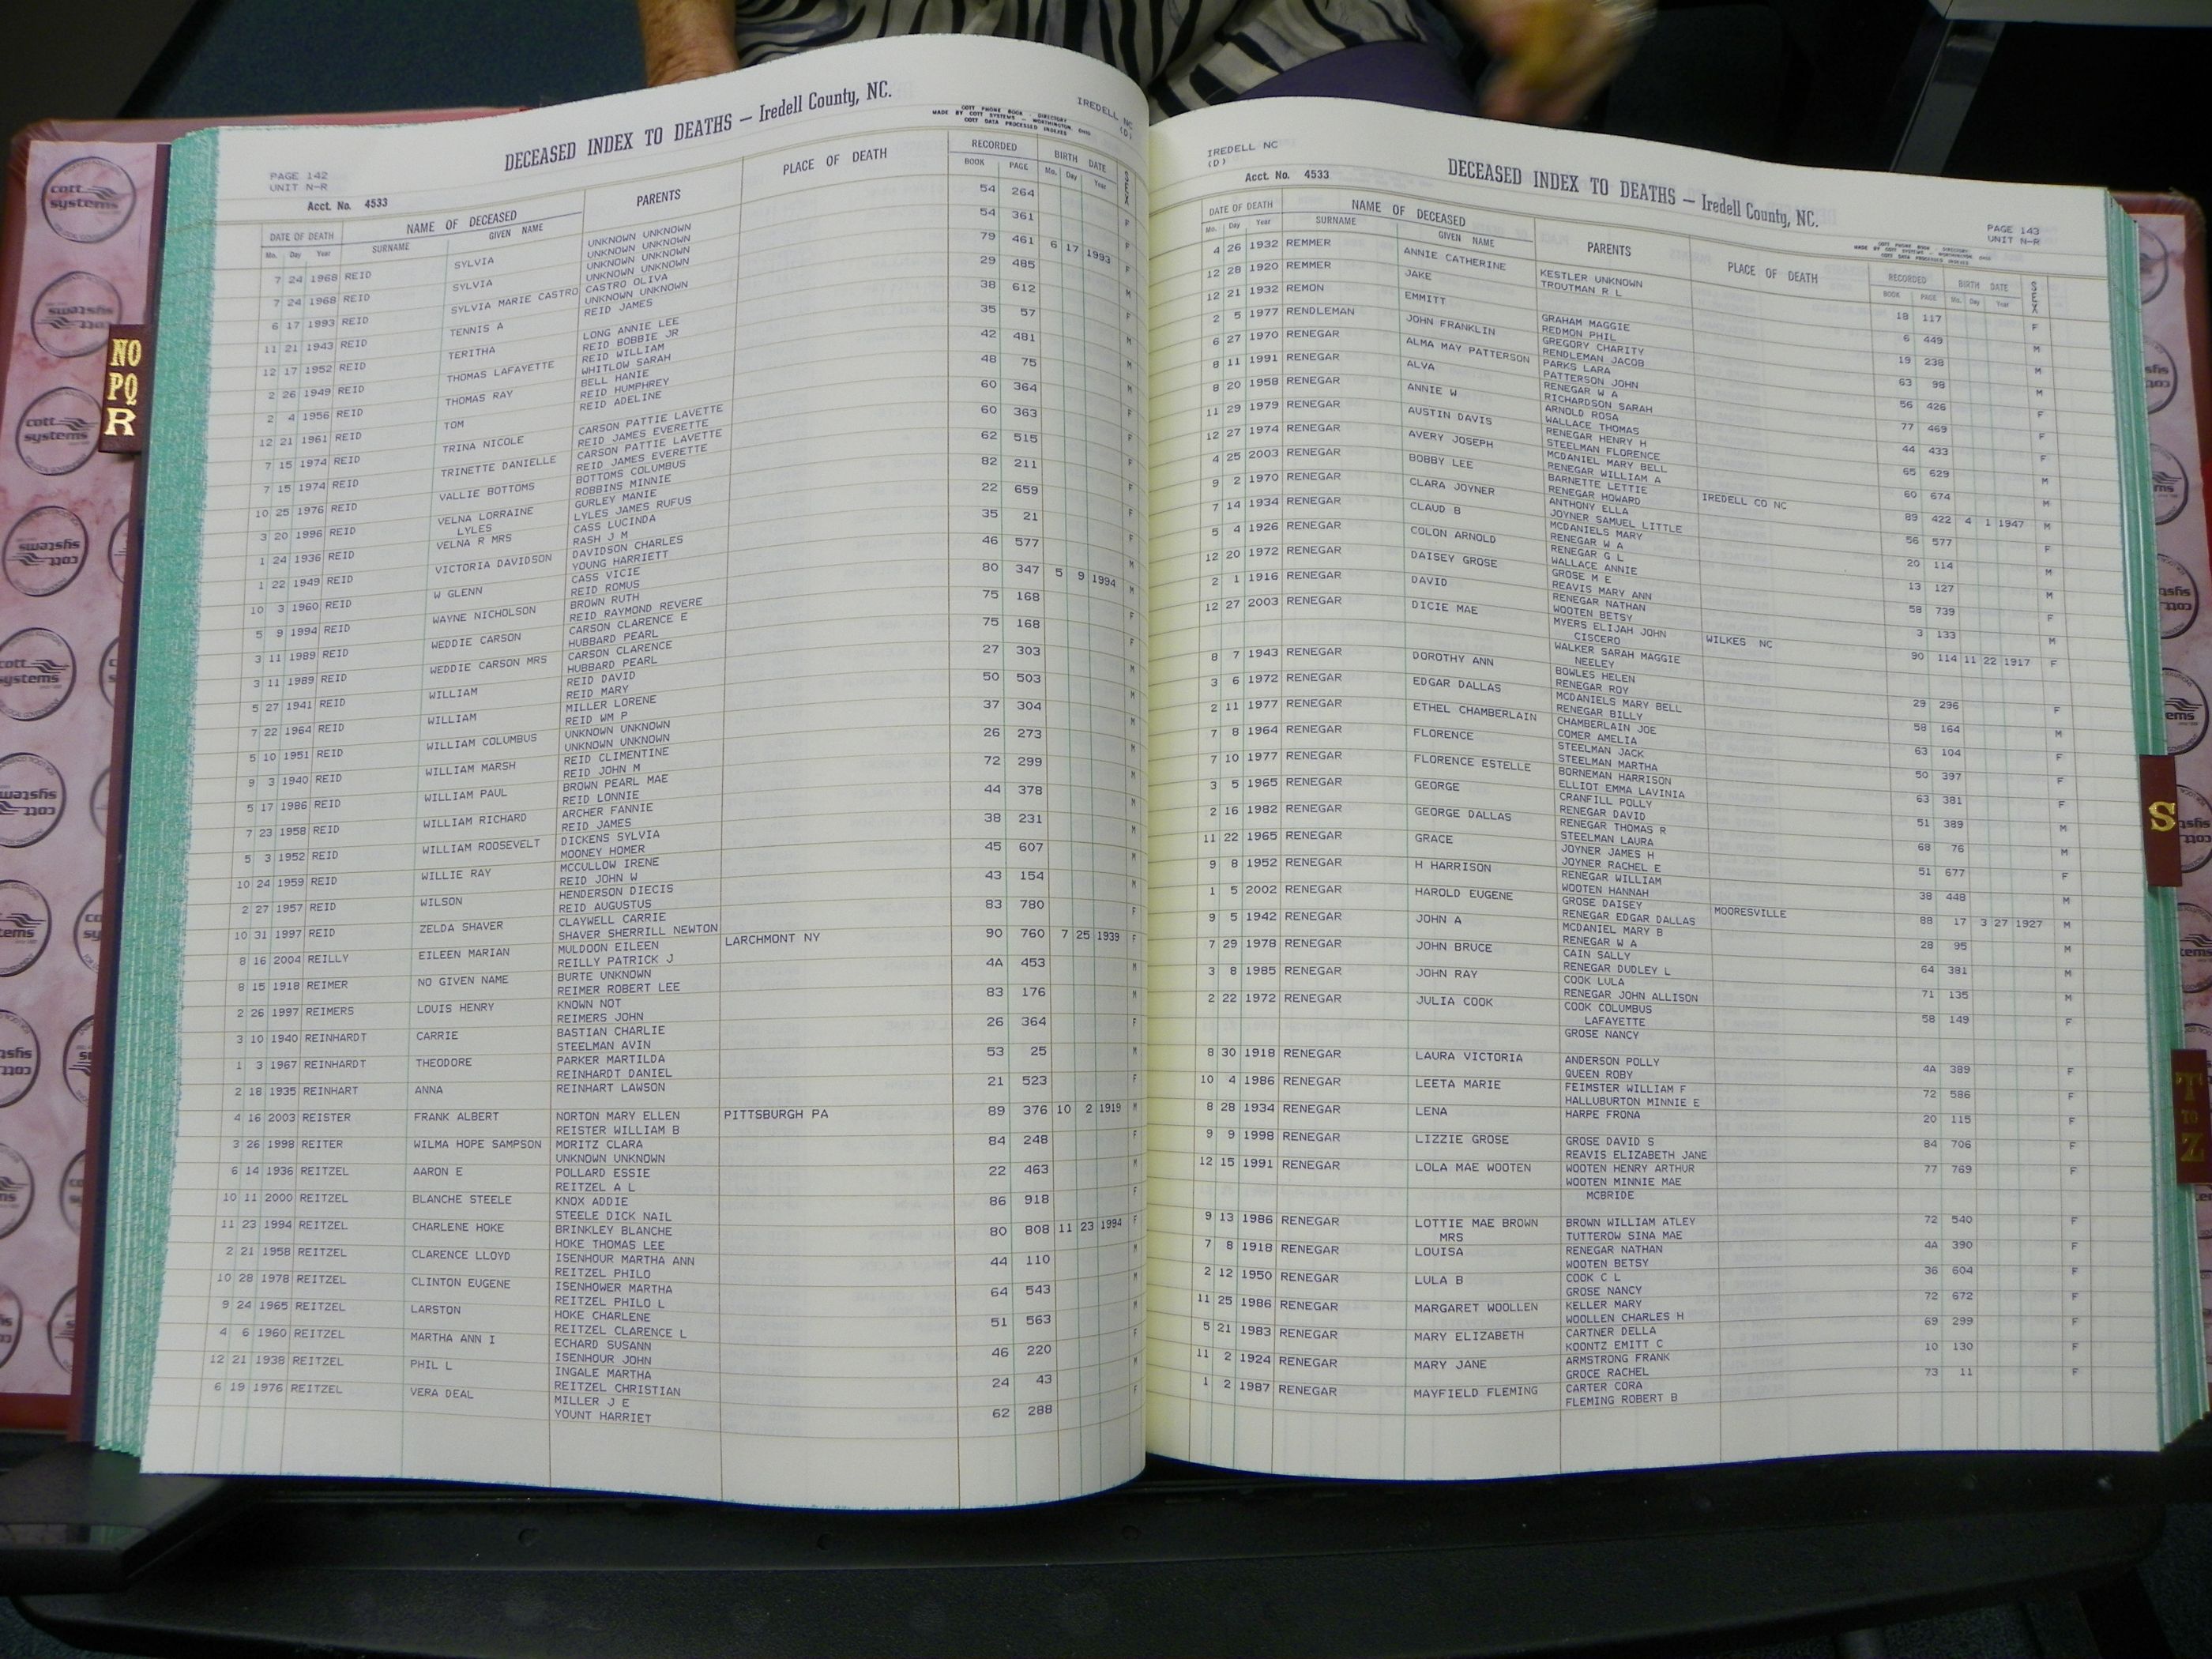 DECEASED INDEX TO DEATHS — Iredell County, NC.
COTT PHONE BOOK - DIRECTORY
MADE BY COTT SYSTEMS - WORTHINGTON, OHIO
COTT DATA PROCESSED INDEXES
IREDELL NC
(D)
PAGE 142
UNIT N-R
Acct. No. 4533
DATE OF DEATH NAME OF DECEASED PARENTS PLACE OF DEATH RECORDED BIRTH DATE SEX
Mo. Day Year SURNAME GIVEN NAME BOOK PAGE Mo. Day Year
7 24 1968 REID SYLVIA UNKNOWN UNKNOWN 54 264 F
UNKNOWN UNKNOWN
7 24 1968 REID SYLVIA UNKNOWN UNKNOWN 54 361 F
UNKNOWN UNKNOWN
6 17 1993 REID SYLVIA MARIE CASTRO CASTRO OLIVA 79 461 6 17 1993 F
UNKNOWN UNKNOWN
11 21 1943 REID TENNIS A REID JAMES 29 485 M
12 17 1952 REID TERITHA LONG ANNIE LEE 38 612 F
REID BOBBIE JR
2 26 1949 REID THOMAS LAFAYETTE REID WILLIAM 35 57 M
WHITLOW SARAH
2 4 1956 REID THOMAS RAY BELL HANIE 42 481 M
REID HUMPHREY
12 21 1961 REID TOM REID ADELINE 48 75 M
7 15 1974 REID TRINA NICOLE CARSON PATTIE LAVETTE 60 364 F
REID JAMES EVERETTE
7 15 1974 REID TRINETTE DANIELLE CARSON PATTIE LAVETTE 60 363 F
REID JAMES EVERETTE
10 25 1976 REID VALLIE BOTTOMS BOTTOMS COLUMBUS 62 515 F
ROBBINS MINNIE
3 20 1996 REID VELNA LORRAINE GURLEY MANIE 82 211 F
LYLES LYLES JAMES RUFUS
1 24 1936 REID VELNA R MRS CASS LUCINDA 22 659 F
RASH J M
1 22 1949 REID VICTORIA DAVIDSON DAVIDSON CHARLES 35 21 F
YOUNG HARRIETT
10 3 1960 REID W GLENN CASS VICIE 46 577 M
REID ROMUS
5 9 1994 REID WAYNE NICHOLSON BROWN RUTH 80 347 5 9 1994 M
REID RAYMOND REVERE
3 11 1989 REID WEDDIE CARSON CARSON CLARENCE E 75 168 F
HUBBARD PEARL
3 11 1989 REID WEDDIE CARSON MRS CARSON CLARENCE 75 168 F
HUBBARD PEARL
5 27 1941 REID WILLIAM REID DAVID 27 303 M
REID MARY
7 22 1964 REID WILLIAM MILLER LORENE 50 503 M
REID WM P
5 10 1951 REID WILLIAM COLUMBUS UNKNOWN UNKNOWN 37 304 M
UNKNOWN UNKNOWN
9 3 1940 REID WILLIAM MARSH REID CLIMENTINE 26 273 M
REID JOHN M
5 17 1986 REID WILLIAM PAUL BROWN PEARL MAE 72 299 M
REID LONNIE
7 23 1958 REID WILLIAM RICHARD ARCHER FANNIE 44 378 M
REID JAMES
5 3 1952 REID WILLIAM ROOSEVELT DICKENS SYLVIA 38 231 M
MOONEY HOMER
10 24 1959 REID WILLIE RAY MCCULLOW IRENE 45 607 M
REID JOHN W
2 27 1957 REID WILSON HENDERSON DIECIS 43 154 M
REID AUGUSTUS
10 31 1997 REID ZELDA SHAVER CLAYWELL CARRIE 83 780 F
SHAVER SHERRILL NEWTON
8 16 2004 REILLY EILEEN MARIAN MULDOON EILEEN LARCHMONT NY 90 760 7 25 1939 F
REILLY PATRICK J
8 15 1918 REIMER NO GIVEN NAME BURTE UNKNOWN 4A 453 M
REIMER ROBERT LEE
2 26 1997 REIMERS LOUIS HENRY KNOWN NOT 83 176 M
REIMERS JOHN
3 10 1940 REINHARDT CARRIE BASTIAN CHARLIE 26 364 F
STEELMAN AVIN
1 3 1967 REINHARDT THEODORE PARKER MARTILDA 53 25 M
REINHARDT DANIEL
2 18 1935 REINHART ANNA REINHART LAWSON 21 523 F
4 16 2003 REISTER FRANK ALBERT NORTON MARY ELLEN PITTSBURGH PA 89 376 10 2 1919 M
REISTER WILLIAM B
3 26 1998 REITER WILMA HOPE SAMPSON MORITZ CLARA 84 248 F
UNKNOWN UNKNOWN
6 14 1936 REITZEL AARON E POLLARD ESSIE 22 463 M
REITZEL A L
10 11 2000 REITZEL BLANCHE STEELE KNOX ADDIE 86 918 F
STEELE DICK NAIL
11 23 1994 REITZEL CHARLENE HOKE BRINKLEY BLANCHE 80 808 11 23 1994 F
HOKE THOMAS LEE
2 21 1958 REITZEL CLARENCE LLOYD ISENHOUR MARTHA ANN 44 110 M
REITZEL PHILO
10 28 1978 REITZEL CLINTON EUGENE ISENHOWER MARTHA 64 543 M
REITZEL PHILO L
9 24 1965 REITZEL LARSTON HOKE CHARLENE 51 563 M
REITZEL CLARENCE L
4 6 1960 REITZEL MARTHA ANN I ECHARD SUSANN 46 220 F
ISENHOUR JOHN
12 21 1938 REITZEL PHIL L INGALE MARTHA 24 43 M
REITZEL CHRISTIAN
6 19 1976 REITZEL VERA DEAL MILLER J E 62 288 F
YOUNT HARRIET
IREDELL NC
(D)
Acct. No. 4533
DECEASED INDEX TO DEATHS — Iredell County, NC.
PAGE 143
UNIT N-R
COTT PHONE BOOK - DIRECTORY
MADE BY COTT SYSTEMS - WORTHINGTON, OHIO
COTT DATA PROCESSED INDEXES
DATE OF DEATH NAME OF DECEASED PARENTS PLACE OF DEATH RECORDED BIRTH DATE SEX
Mo. Day Year SURNAME GIVEN NAME BOOK PAGE Mo. Day Year
4 26 1932 REMMER ANNIE CATHERINE KESTLER UNKNOWN 18 117 F
TROUTMAN R L
12 28 1920 REMMER JAKE 6 449 M
12 21 1932 REMON EMMITT GRAHAM MAGGIE 19 238 M
REDMON PHIL
2 5 1977 RENDLEMAN JOHN FRANKLIN GREGORY CHARITY 63 98 M
RENDLEMAN JACOB
6 27 1970 RENEGAR ALMA MAY PATTERSON PARKS LARA 56 426 F
PATTERSON JOHN
8 11 1991 RENEGAR ALVA RENEGAR W A 77 469 F
RICHARDSON SARAH
8 20 1958 RENEGAR ANNIE W ARNOLD ROSA 44 433 F
WALLACE THOMAS
11 29 1979 RENEGAR AUSTIN DAVIS RENEGAR HENRY H 65 629 M
STEELMAN FLORENCE
12 27 1974 RENEGAR AVERY JOSEPH MCDANIEL MARY BELL 60 674 M
RENEGAR WILLIAM A
4 25 2003 RENEGAR BOBBY LEE BARNETTE LETTIE IREDELL CO NC 89 422 4 1 1947 M
RENEGAR HOWARD
9 2 1970 RENEGAR CLARA JOYNER ANTHONY ELLA 56 577 F
JOYNER SAMUEL LITTLE
7 14 1934 RENEGAR CLAUD B MCDANIELS MARY 20 114 M
RENEGAR W A
5 4 1926 RENEGAR COLON ARNOLD RENEGAR G L 13 127 M
WALLACE ANNIE
12 20 1972 RENEGAR DAISEY GROSE GROSE M E 58 739 F
REAVIS MARY ANN
2 1 1916 RENEGAR DAVID RENEGAR NATHAN 3 133 M
WOOTEN BETSY
12 27 2003 RENEGAR DICIE MAE MYERS ELIJAH JOHN WILKES NC 90 114 11 22 1917 F
CISCERO
WALKER SARAH MAGGIE
NEELEY
8 7 1943 RENEGAR DOROTHY ANN BOWLES HELEN 29 296 F
RENEGAR ROY
3 6 1972 RENEGAR EDGAR DALLAS MCDANIELS MARY BELL 58 164 M
RENEGAR BILLY
2 11 1977 RENEGAR ETHEL CHAMBERLAIN CHAMBERLAIN JOE 63 104 F
COMER AMELIA
7 8 1964 RENEGAR FLORENCE STEELMAN JACK 50 397 F
STEELMAN MARTHA
7 10 1977 RENEGAR FLORENCE ESTELLE BORNEMAN HARRISON 63 381 F
ELLIOT EMMA LAVINIA
3 5 1965 RENEGAR GEORGE CRANFILL POLLY 51 389 M
RENEGAR DAVID
2 16 1982 RENEGAR GEORGE DALLAS RENEGAR THOMAS R 68 76 M
STEELMAN LAURA
11 22 1965 RENEGAR GRACE JOYNER JAMES H 51 677 F
JOYNER RACHEL E
9 8 1952 RENEGAR H HARRISON RENEGAR WILLIAM 38 448 M
WOOTEN HANNAH
1 5 2002 RENEGAR HAROLD EUGENE GROSE DAISEY MOORESVILLE 88 17 3 27 1927 M
RENEGAR EDGAR DALLAS
9 5 1942 RENEGAR JOHN A MCDANIEL MARY B 28 95 M
RENEGAR W A
7 29 1978 RENEGAR JOHN BRUCE CAIN SALLY 64 381 M
RENEGAR DUDLEY L
3 8 1985 RENEGAR JOHN RAY COOK LULA 71 135 M
RENEGAR JOHN ALLISON
2 22 1972 RENEGAR JULIA COOK COOK COLUMBUS 58 149 F
LAFAYETTE
GROSE NANCY
8 30 1918 RENEGAR LAURA VICTORIA ANDERSON POLLY 4A 389 F
QUEEN ROBY
10 4 1986 RENEGAR LEETA MARIE FEIMSTER WILLIAM F 72 586 F
HALLUBURTON MINNIE E
8 28 1934 RENEGAR LENA HARPE FRONA 20 115 F
9 9 1998 RENEGAR LIZZIE GROSE GROSE DAVID S 84 706 F
REAVIS ELIZABETH JANE
12 15 1991 RENEGAR LOLA MAE WOOTEN WOOTEN HENRY ARTHUR 77 769 F
WOOTEN MINNIE MAE
MCBRIDE
9 13 1986 RENEGAR LOTTIE MAE BROWN BROWN WILLIAM ATLEY 72 540 F
MRS TUTTEROW SINA MAE
7 8 1918 RENEGAR LOUISA RENEGAR NATHAN 4A 390 F
WOOTEN BETSY
2 12 1950 RENEGAR LULA B COOK C L 36 604 F
GROSE NANCY
11 25 1986 RENEGAR MARGARET WOOLLEN KELLER MARY 72 672 F
WOOLLEN CHARLES H
5 21 1983 RENEGAR MARY ELIZABETH CARTNER DELLA 69 299 F
KOONTZ EMITT C
11 2 1924 RENEGAR MARY JANE ARMSTRONG FRANK 10 130 F
GROCE RACHEL
1 2 1987 RENEGAR MAYFIELD FLEMING CARTER CORA 73 11 F
FLEMING ROBERT B
NO
PQ
R
S
T
TO
Z
cott
systems